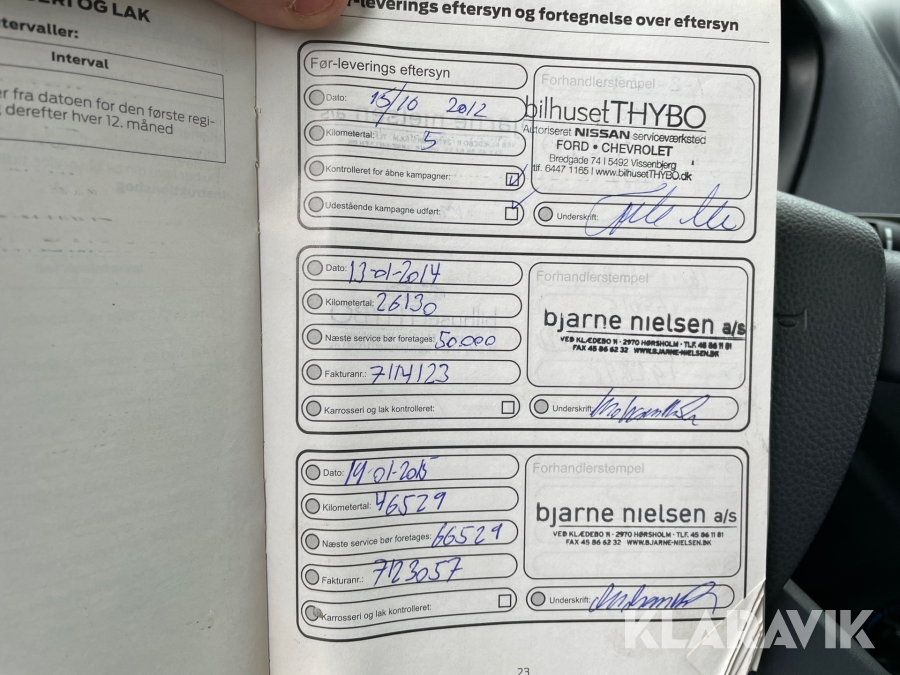 ERI OG LAK
tervaller:
Interval
er fra datoen for den første regi-
derefter hver 12. måned
-leverings eftersyn og fortegnelse over eftersyn
Før-leverings eftersyn
Dato: 15/10 2012
Kilometertal: 5
Kontrolleret for åbne kampagner:
Udestående kampagne udført:
Forhandlerstempel
bilhusetTHYBO
Autoriseret NISSAN serviceværksted
FORD • CHEVROLET
Bredgade 74 | 5492 Vissenbjerg
tlf. 6447 1165 | www.bilhusetTHYBO.dk
Underskrift:
Dato: 13-01-2014
Kilometertal: 26130
Næste service bør foretages: 50.000
Fakturanr.: 7114123
Karrosseri og lak kontrolleret:
Forhandlerstempel
bjarne nielsen a/s
VED KLÆDEBO 11 - 2970 HØRSHOLM - TLF. 45 86 11 81
FAX 45 86 62 32 WWW.BJARNE-NIELSEN.DK
Underskrift:
Dato: 19-01-2015
Kilometertal: 46529
Næste service bør foretages: 66529
Fakturanr.: 7123057
Karrosseri og lak kontrolleret:
Forhandlerstempel
bjarne nielsen a/s
VED KLÆDEBO 11 - 2970 HØRSHOLM - TLF. 45 86 11 81
FAX 45 86 62 32 WWW.BJARNE-NIELSEN.DK
Underskrift:
23
KLARAVIK